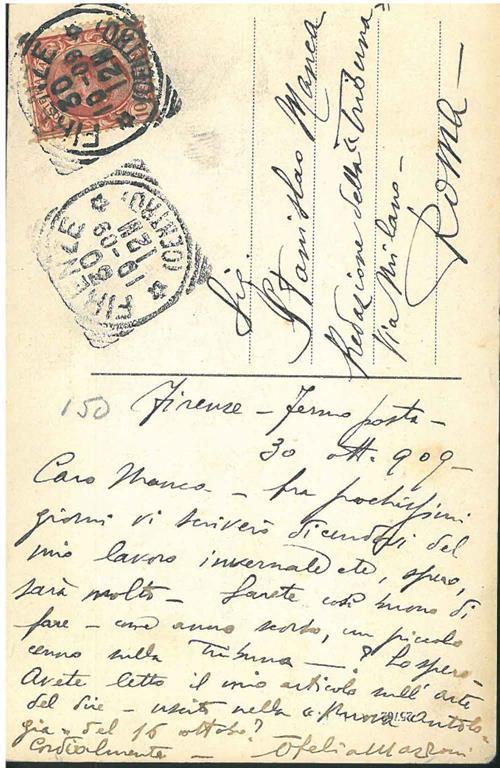 FIRENZE
(CENTRO)
30
12M
FIRENZE
(CENTRO)
30
10-09
12M
Sig.
Stanislao Manca
Redazione della "Tribuna"
Via Milano -
Roma -
150
Firenze - fermo posta -
30 ott. 909 -
Caro Manca - fra pochissimi
giorni vi scriverò dicendovi del
mio lavoro invernale che, spero,
sarà molto - Sarete così buono di
fare - come anno scorso, un piccolo
cenno sulla Tribuna - ? Lo spero -
Avete letto il mio articolo sull'arte
del dire - uscito nella "Nuova Antolo-
gia" del 16 ottobre?
Cordialmente - Ofelia Mazzoni